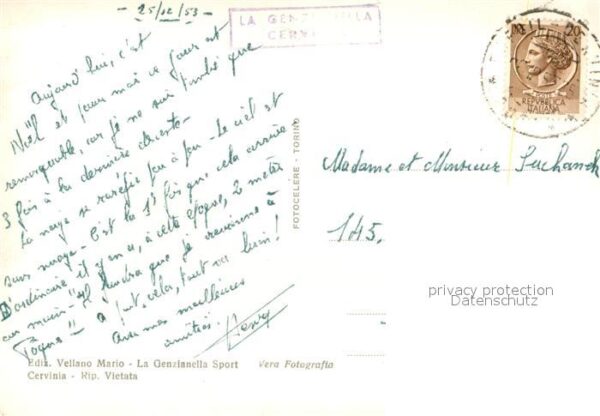 25/12/53 -
LA GENZIANELLA
CERVINIA
Aujourd'hui, c'est
Noël et pour moi ce jour est
remarquable, car je ne suis tombé que
3 fois à la dernière descente -
La neige se raréfie peu à peu - Le ciel est
sans nuage - C'est la 1ère fois que cela arrive
D'ordinaire il y en a, à cette époque, 2 mètres
au moins - Il faudra que je revienne à
Pâques - à part cela, tout va bien !
Avec mes meilleures
amitiés
Ediz. Vellano Mario - La Genzianella Sport
Cervinia - Rip. Vietata
Vera Fotografia
FOTOCELERE - TORINO
20
POSTE
REPUBBLICA
ITALIANA
Madame et Monsieur Suchanek
145.
privacy protection
Datenschutz